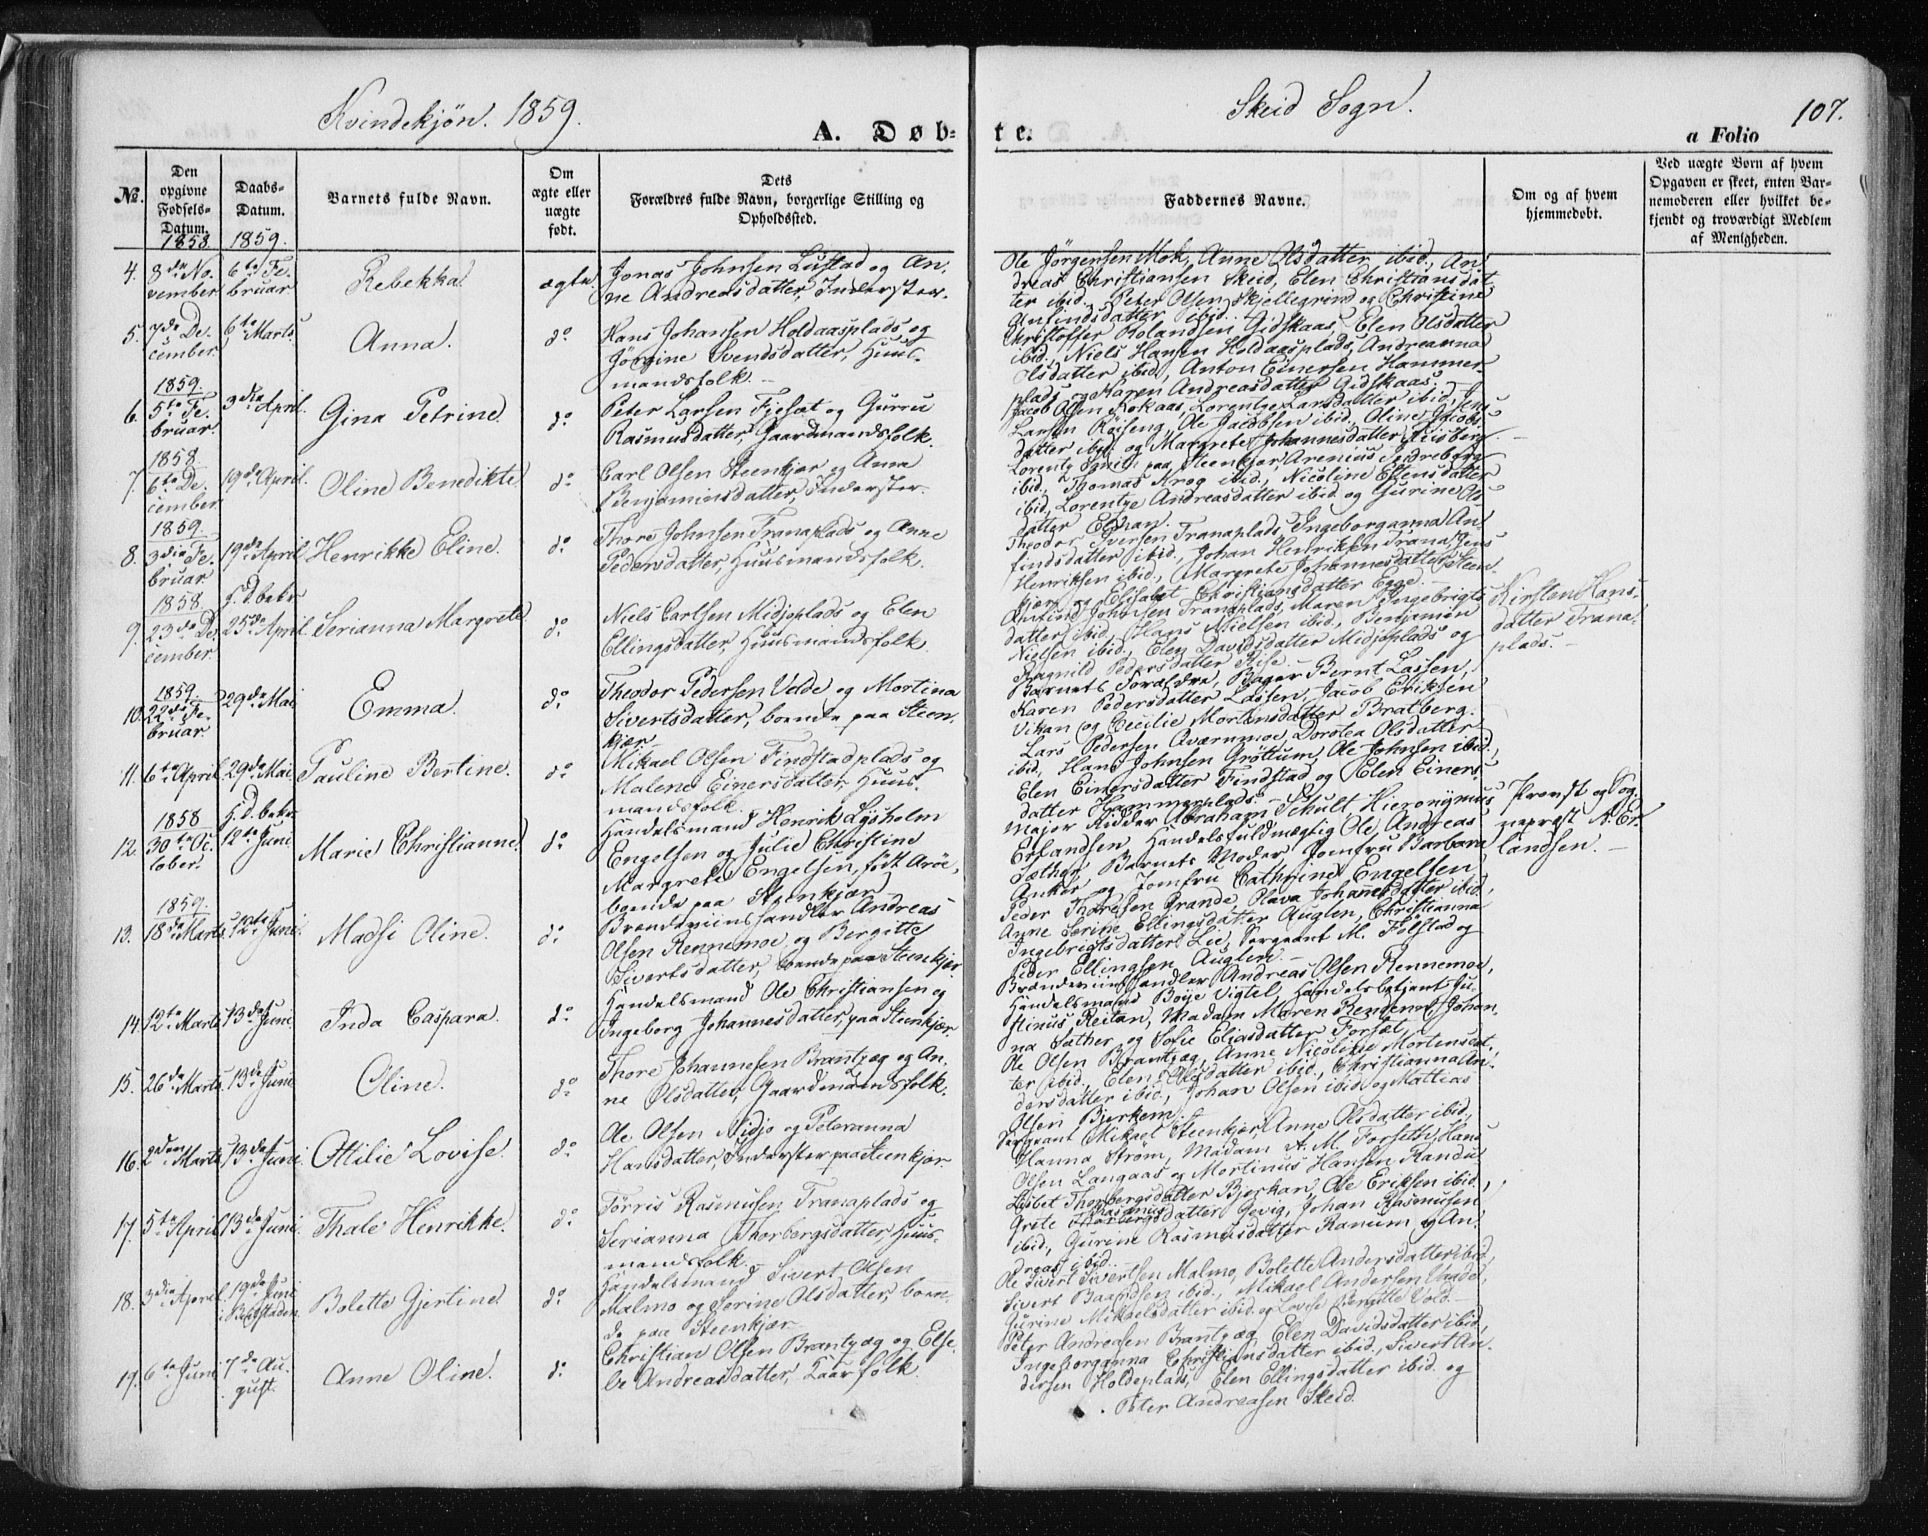 Kvindekjøn. 1859.
A. Døb-
te.
Skeid Sogn.
107.
a Folio
No.
Den opgivne Fødsels-Datum.
Daabs-Datum.
Barnets fulde Navn.
Om ægte eller uægte født.
Dets
Forældres fulde Navn, borgerlige Stilling og
Opholdssted.
Faddernes Navne.
Om og af hvem
hjemmedøbt.
Ved uægte Børn af hvem
Opgaven er skeet, enten Bar-
nemoderen eller hvilket be-
kjendt og troværdigt Medlem
af Menigheden.
1858 1859.
4. 8de No-
vember 6te Fe-
bruar Rebekka. ægte.
Jonas Johnsen Lustad og An-
ne Andreasdatter, Inderster.
Ole Jörgensen Mok, Anne Olsdatter ibid., An-
dreas Christiansen Skeid, Elen Christiansdat-
ter ibid., Peter Olsen Skjellegrind og Christine
Anfindsdatter ibid.
5. 7de De-
cember. 6te Marts. Anna. do
Hans Johansen Holdaasplads og
Jörgine Svendsdatter, Huus-
mandsfolk.
Christoffer Rolandsen Gidskaas, Elen Olsdatter
ibid., Niels Hansen Holdaasplads, Andreanna
Olsdatter ibid., Anton Einersen Hammer-
plads og Karen Andreasdatter Gidskaas.
1859.
6. 5te Fe-
bruar. 3die April. Gina Petrine. do
Peter Larsen Fjesæt og Gurru
Rasmusdatter, Gaardmandsfolk.
Jacob Olsen Rokaas, Lorentze Larsdatter ibid., Jens
Larsen Röiseng, Ole Jacobsen ibid., Oline Jacobs-
datter ibid. og Margrete Johannesdatter Reisberg.
1858.
7. 6te De-
cember 19de April. Oline Benedikte do
Carl Olsen Steenkjær og Anna
Benjaminsdatter, Inderster.
Lorentz Smith paa Steenkjær, Arenius Seidreberg
ibid., Thomas Krog ibid., Nicoline Ellensdatter
ibid., Lorentze Andreasdatter ibid. og Gurine Ols-
datter Elnan.
1859.
8. 3die Fe-
bruar 19de April Henrikke Eline. do
Thore Johnsen Tranaplads og Anne
Pedersdatter, Huusmandsfolk.
Theodor Iversen Tranaplads, Ingeborganna An-
findsdatter ibid., Johan Henriksen Trana, Jens
Henriksen ibid., Margrete Johannesdatter Steen-
kjær og Elisabet Christiansdatter Egge.
1858. f. D. bekr.
9. 23de De-
cember. 25de April. Serianna Margrete. do
Niels Carlsen Midjoplads og Elen
Ellingsdatter, Huusmandsfolk.
Anfind Johnsen Tranaplads, Maren Ingebrigts-
datter ibid., Hans Nielsen ibid., Benjamin
Nielsen ibid., Elen Davidsdatter Midjoplads og
Ragnild Pedersdatter Rise.
Kirsten Hans-
datter Trana-
plads.
1859.
10. 22de Fe-
bruar 29de Mai Emma. do
Theodor Pedersen Velde og Mortina
Sivertsdatter, boende paa Steen-
kjær
Barnets Forældre, Bager Bernt Lassen,
Karen Pedersdatter Lassen, Jacob Eriksen
Vikan og Cecilie Mortensdatter Bratberg.
11. 6te April 29de Mai. Pauline Bertine. do
Mikael Olsen Findstadplads og
Malene Einersdatter, Huus-
mandsfolk.
Lars Pedersen Qværnmoe, Dorotea Olsdatter
ibid., Hans Johnsen Gröttum, Ole Johnsen ibid.,
Elen Einersdatter Findstad og Elen Einers-
datter Hammerplads.
1858 H. D. bekr.
12. 30te Oc-
tober. 12te Juni Marie Christianne. do
Handelsmand Henrik Lysholm
Engelsen og Julie Christine
Margrete Engelsen, født Aröe,
boende paa Steenkjær
Major Ridder Abraham Schult Hieronymus
Erlandsen, Handelsfuldmægtig Ole Andreas
Sæther, Barnets Moder, Jomfru Barbara
Anker og Jomfru Cathrine Engelsen
Provst og Sog-
nepræst A. Er-
landsen.
1859.
13. 18de Marts 12te Juni. Madsi Oline. do
Brændeviinshandler Andreas
Olsen Rennemoe og Bergitte
Sivertsdatter, boende paa Steenkjær
Peder Thoresen Grande, Olava Johannesdatter ibid.,
Anne Serine Ellingsdatter Auglen, Christianna
Ingebrigtsdatter Lie, Sergeant M. Følstad og
Peder Ellingsen Auglen.
14. 12te Marts 13de Juni Inda Caspara. do
Handelsmand Ole Christiansen og
Ingeborg Johannesdatter, paa Steenkjær
Brændeviinshandler Andreas Olsen Rennemoe,
Handelsmand Boye Vigtel, Handelsbetjent Ju-
stinus Reitan, Madam Maren Rennemo, Johan-
na Sæther og Sofie Eliasdatter Forsæt.
15. 26de Marts 13de Juni Oline. do
Thore Johannesen Brantzæg og An-
ne Olsdatter, Gaardmandsfolk.
Ole Olsen Brantzæg, Anne Nicoline Mortensdat-
ter ibid., Elen Olsdatter ibid., Christianna An-
dersdatter ibid., Johan Olsen ibid. og Mattias
Olsen Bjerkem.
16. 2den Marts 13de Juni Ottilie Lovise. do
Ole Olsen Midjo og Peteranna
Hansdatter, Inderster paa Steenkjær.
Sergeant Mikael Steenkjær, Anne Olsdatter ibid.,
Hanna Strøm, Madam A. M. Forseth, Hans
Olsen Langaas og Mortinus Hansen Kandus
17. 5te April 13de Juni. Thale Henrikke. do
Tørris Rasmusen Tranaplads og
Serianna Thorbergsdatter, Huus-
mandsfolk.
Lisbet Thorbergsdatter Bjerkan, Ole Eriksen ibid.,
Grete Rasmusdatter Gevig, Johan Rasmusen
ibid., Gurine Rasmusdatter Ranum og An-
dreas ibid.
18. 3die April. 19de Juni
i Beitstaden Bolette Gjertine. do
Handelsmand Sivert Olsen
Malmo og Serine Olsdatter, boen-
de paa Steenkjær
Ole Sivert Sivertsen Malmo, Bolette Andersdatter ibid.,
Sivert Baardsen ibid., Mikael Andersen Vaade,
Gurine Mikkelsdatter ibid. og Lovise Bergitte Vold.
19. 6te Juni 7de Au-
gust. Anne Oline. do
Christian Olsen Brantzæg og Else-
be Andreasdatter, Kaarfolk.
Peter Andreasen Brantzæg, Elen Davidsdatter ibid.,
Ingeborganna Christiansdatter ibid., Sivert An-
dersen Holdeplads, Elen Ellingsdatter ibid. og
Peter Andreasen Skeid.